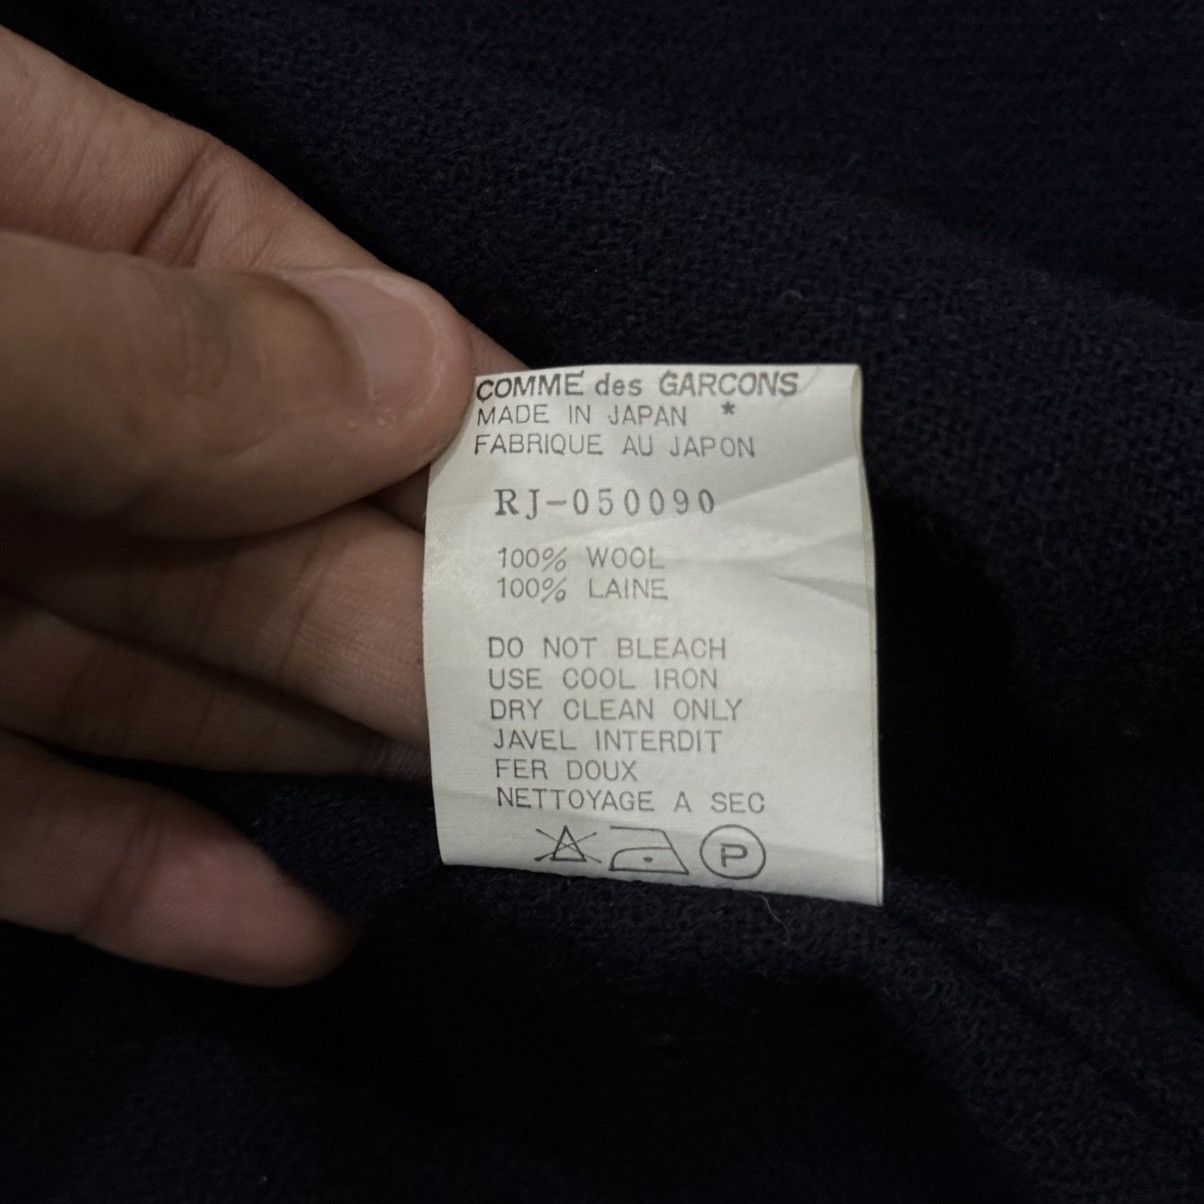 COMME des GARCONS
MADE IN JAPAN *
FABRIQUE AU JAPON
RJ-050090
100% WOOL
100% LAINE
DO NOT BLEACH
USE COOL IRON
DRY CLEAN ONLY
JAVEL INTERDIT
FER DOUX
NETTOYAGE A SEC
P